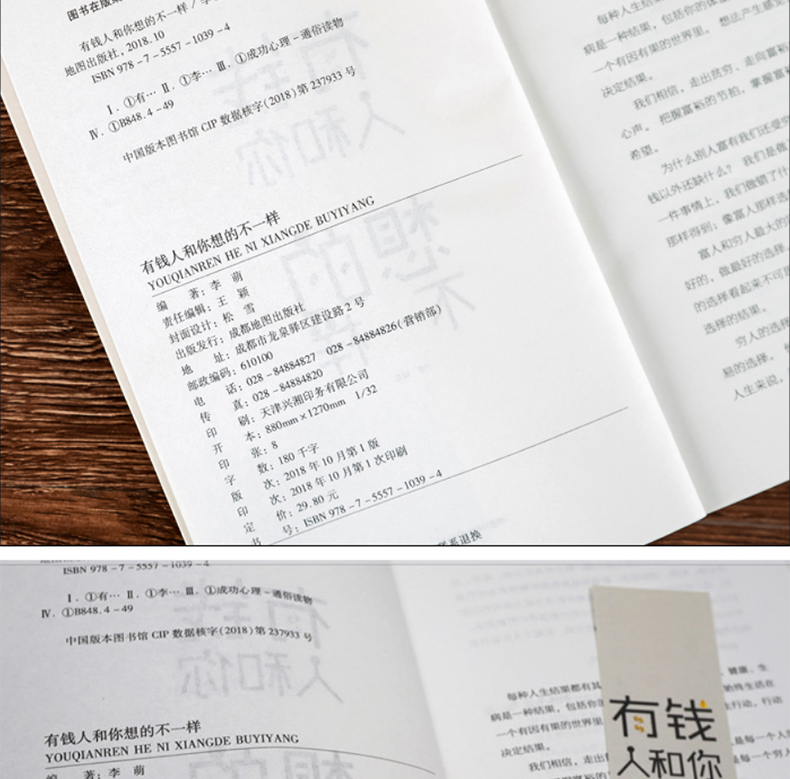 图书在版
有钱人和你想的不一样 / 李
地图出版社, 2018.10
ISBN 978-7-5557-1039-4
Ⅰ. ①有… Ⅱ. ①李… Ⅲ. ①成功心理-通俗读物
Ⅳ. ①B848.4-49
中国版本图书馆 CIP 数据核字(2018)第 237933 号
有钱人和你想的不一样
YOUQIANREN HE NI XIANGDE BUYIYANG
编 著: 李 萌
责任编辑: 王 颖
封面设计: 松 雪
出版发行: 成都地图出版社
地 址: 成都市龙泉驿区建设路 2 号
邮政编码: 610100
电 话: 028-84884827 028-84884826(营销部)
传 真: 028-84884820
印 刷: 天津兴湘印务有限公司
开 本: 880mm×1270mm 1/32
印 张: 8
字 数: 180 千字
版 次: 2018 年 10 月第 1 版
印 次: 2018 年 10 月第 1 次印刷
定 价: 29.80 元
书 号: ISBN 978-7-5557-1039-4
系退换
每种人生结
病是一种结果, 包括你的体
一个有因有果的世界里。 想法产生感觉
决定结果。
我们相信, 走出贫穷、走向富裕
心声。 把握富裕的节拍, 掌握富
希望。
为什么别人富有我们还受穷
钱以外还缺什么? 我们是做
一件事情上, 我们做错了什
那样得到; 像富人那样选
富人和穷人最大的
好的, 做最好的选择。
的选择看起来不可思
选择的结果。
穷人的选择
易的选择。
人生来说,
ISBN 978-7-5557-1039-4
Ⅰ. ①有… Ⅱ. ①李… Ⅲ. ①成功心理-通俗读物
Ⅳ. ①B848.4-49
中国版本图书馆 CIP 数据核字(2018)第 237933 号
有钱人和你想的不一样
YOUQIANREN HE NI XIANGDE BUYIYANG
编 著: 李 萌
每种人生结果都有其
健康、生
病是一种结果, 包括你的
始终生活在
一个有因有果的世界里
生行动, 行动
决定结果。
我们相信, 走出
是每一个人
心声。
有钱
人和你